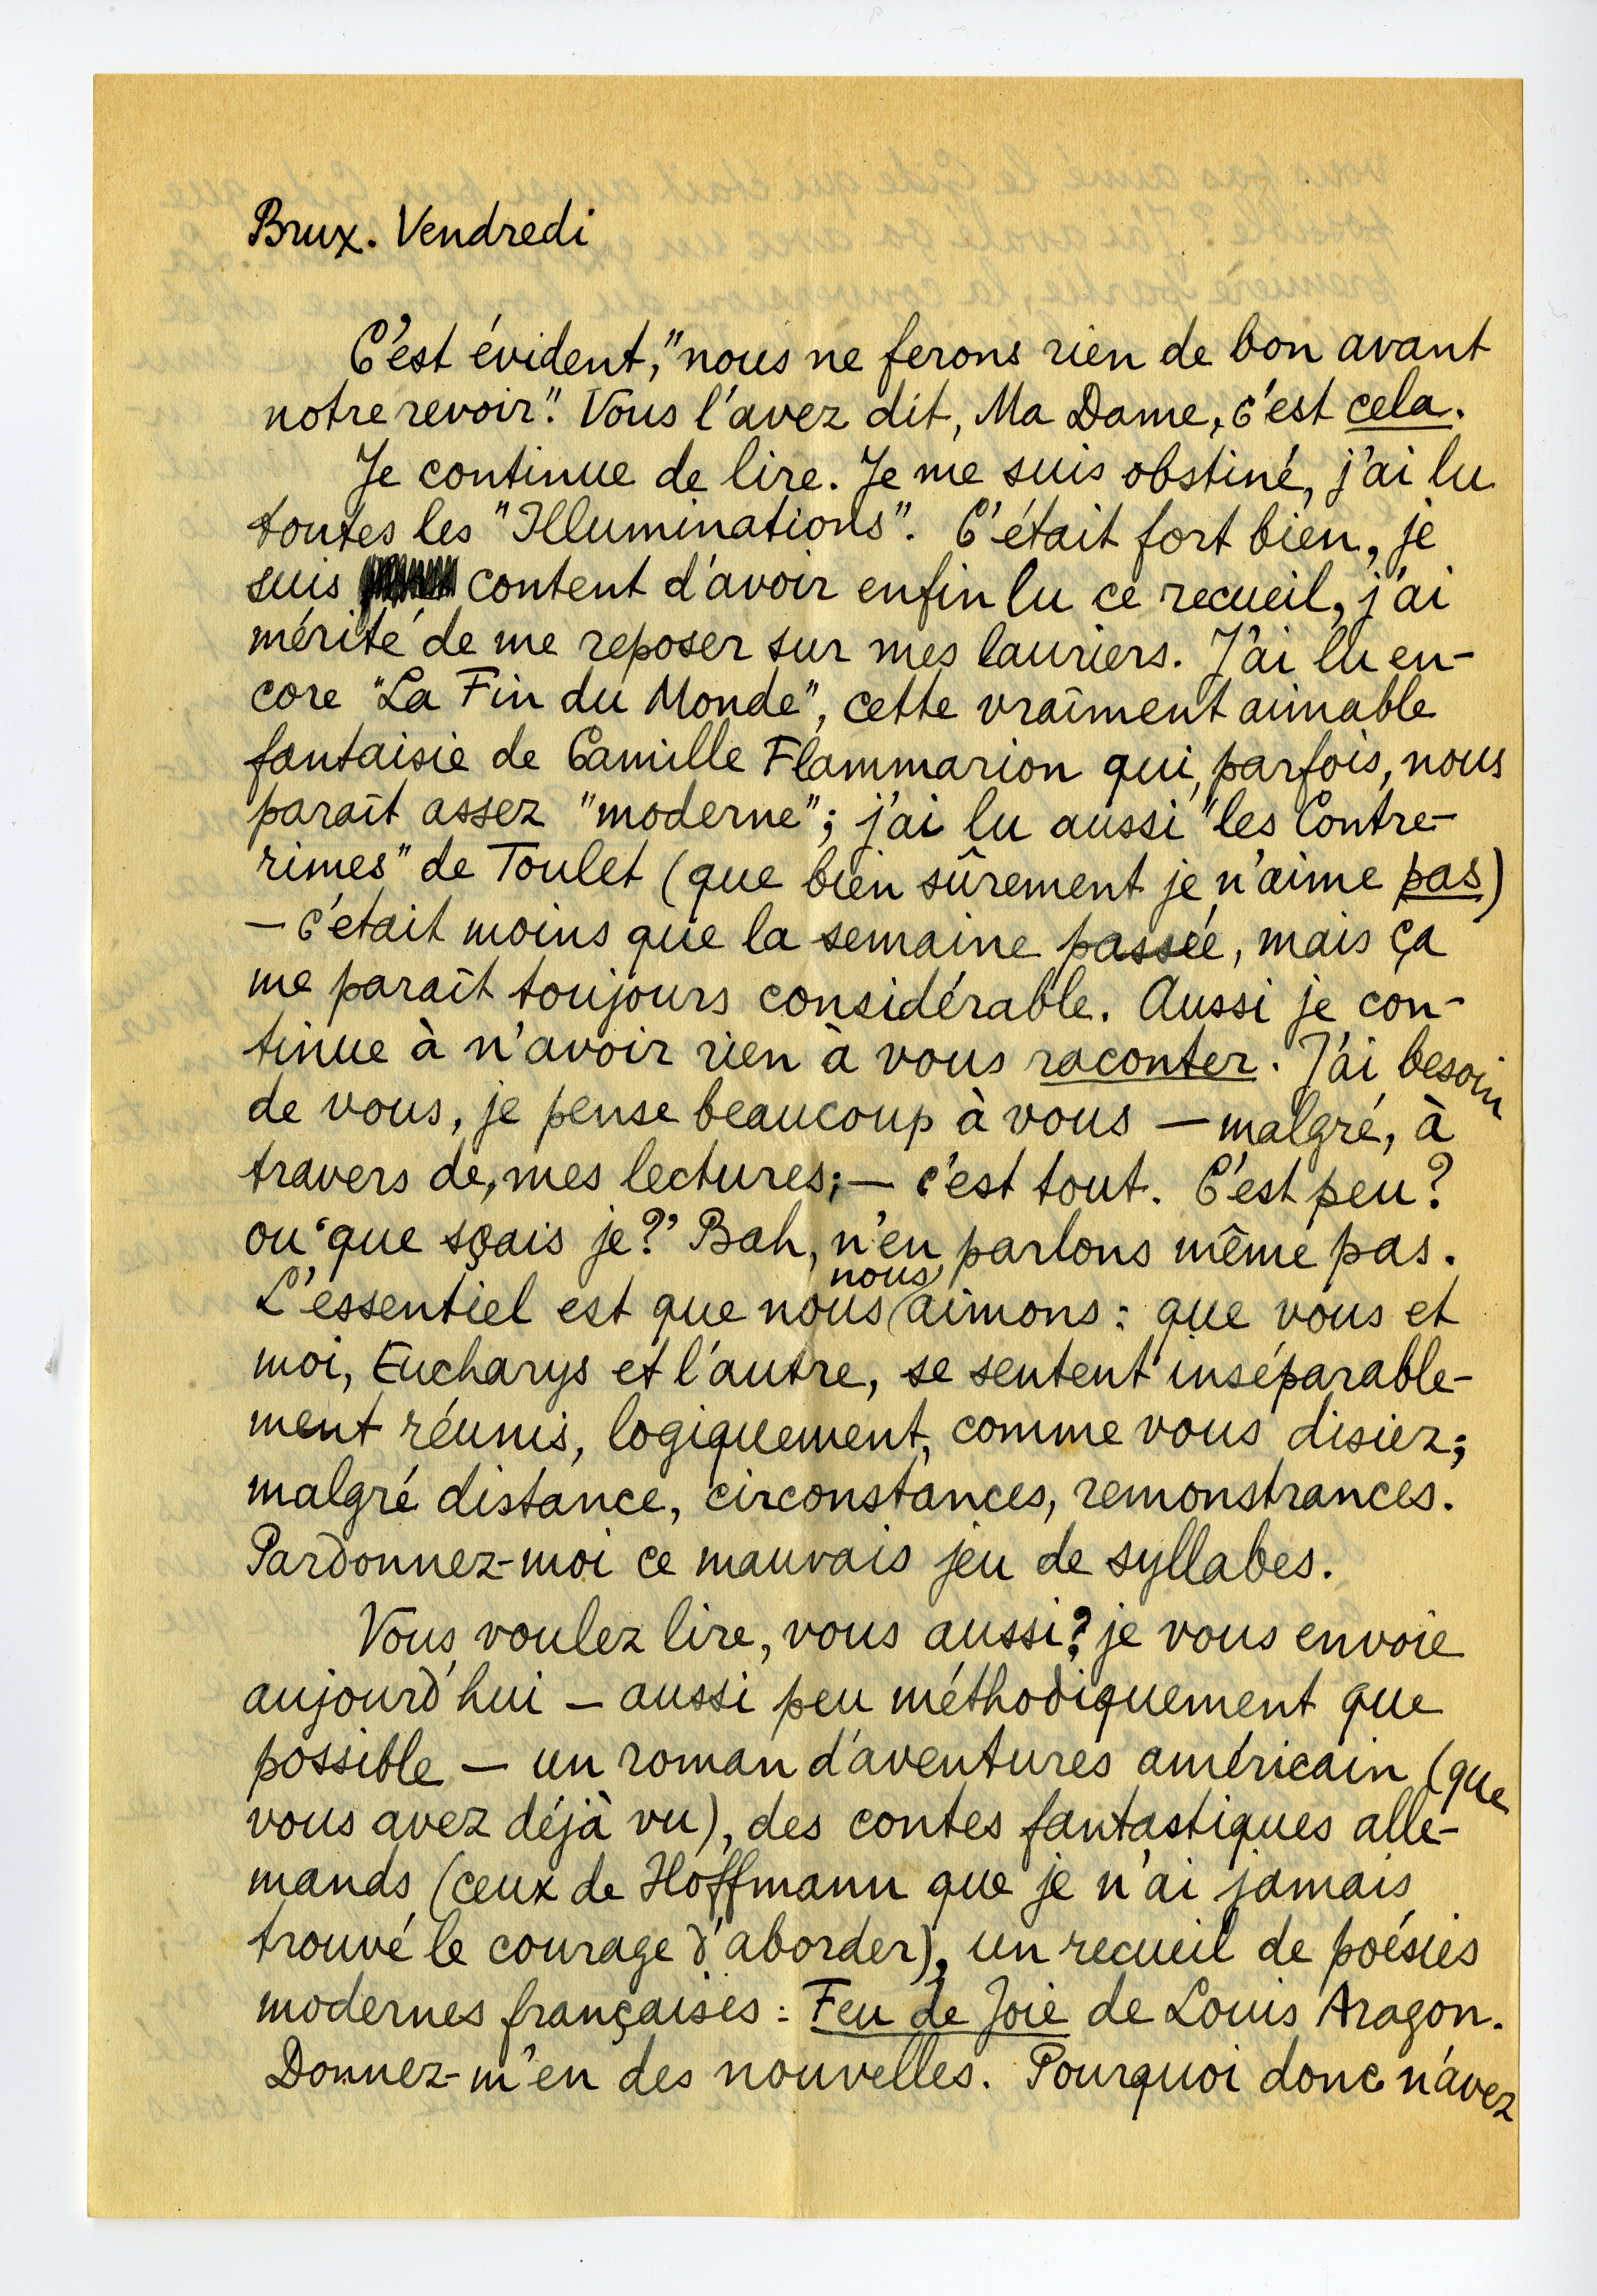 Brux. Vendredi
C'est évident, "nous ne ferons rien de bon avant
notre revoir". Vous l'avez dit, Ma Dame, c'est cela.
Je continue de lire. Je me suis obstiné, j'ai lu
toutes les "Illuminations". C'était fort bien, je
suis content d'avoir enfin lu ce recueil, j'ai
mérité de me reposer sur mes lauriers. J'ai lu en-
core "La Fin du Monde", cette vraîment aimable
fantaisie de Camille Flammarion qui, parfois, nous
paraît assez "moderne"; j'ai lu aussi "les Contre-
rimes" de Toulet (que bien sûrement je n'aime pas)
— c'était moins que la semaine passée, mais ça
me paraît toujours considérable. Aussi je con-
tinue à n'avoir rien à vous raconter. J'ai besoin
de vous, je pense beaucoup à vous — malgré, à
travers de, mes lectures; — c'est tout. C'est peu?
ou 'que sçais je?' Bah, n'en parlons même pas.
L'essentiel est que nous nous aimons: que vous et
moi, Eucharys et l'autre, se sentent inséparable-
ment réunis, logiquement, comme vous disiez;
malgré distance, circonstances, remonstrances.
Pardonnez-moi ce mauvais jeu de syllabes.
Vous voulez lire, vous aussi? je vous envoie
aujourd'hui — aussi peu méthodiquement que
possible — un roman d'aventures américain (que
vous avez déjà vu), des contes fantastiques alle-
mands (ceux de Hoffmann que je n'ai jamais
trouvé le courage d'aborder), un recueil de poésies
modernes françaises: Feu de Joie de Louis Aragon.
Donnez-m'en des nouvelles. Pourquoi donc n'avez